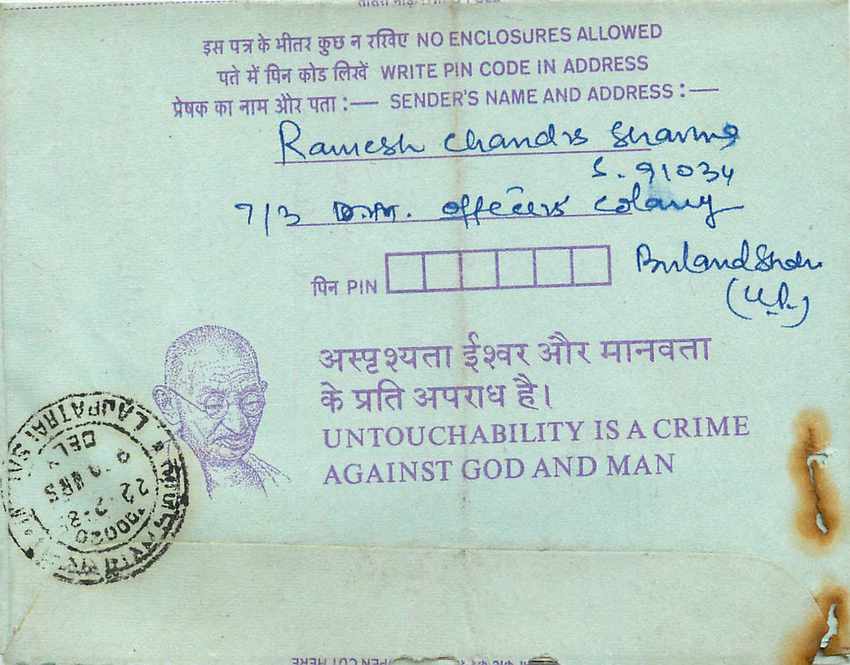 इस पत्र के भीतर कुछ न रखिए NO ENCLOSURES ALLOWED
पते में पिन कोड लिखें WRITE PIN CODE IN ADDRESS
प्रेषक का नाम और पता :— SENDER'S NAME AND ADDRESS :—
Ramesh Chandra Sharma
S. 91034
7/3 D.M. Officers Colony
पिन PIN
Bulandshahr
(U.P.)
अस्पृश्यता ईश्वर और मानवता
के प्रति अपराध है।
UNTOUCHABILITY IS A CRIME
AGAINST GOD AND MAN
LAJPATRAI
DEL
HRS
OPEN CUT HERE